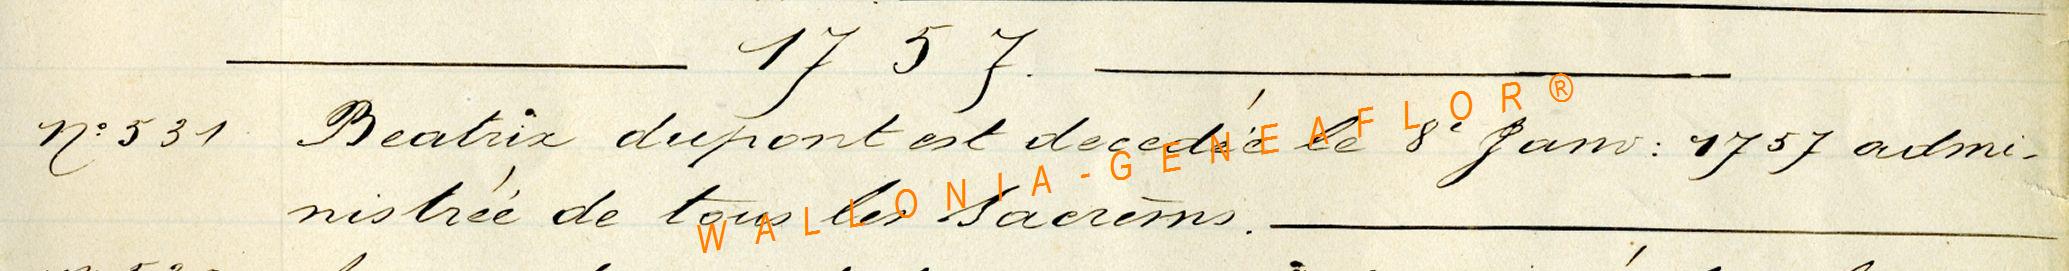 1757.
N° 531 Beatrix dupont est decedée le 8e Janv: 1757 admi-
nistrée de tous les Sacrēms.
WALLONIA-GENEAFLOR®